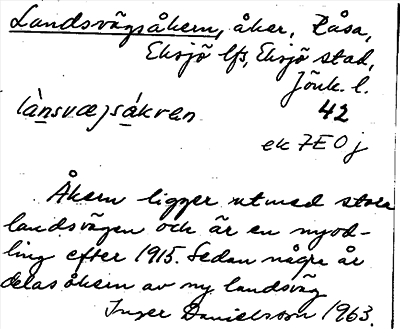 Landsvägsåkern, åker, Råsa,
Eksjö lfs, Eksjö stad,
Jönk. l.
lànsvæjsákren 42
ek 7E0j
Åkern ligger utmed stora
landsvägen och är en nyod-
ling efter 1915. Sedan några år
delas åkern av ny landsväg
Inger Danielsson 1963.